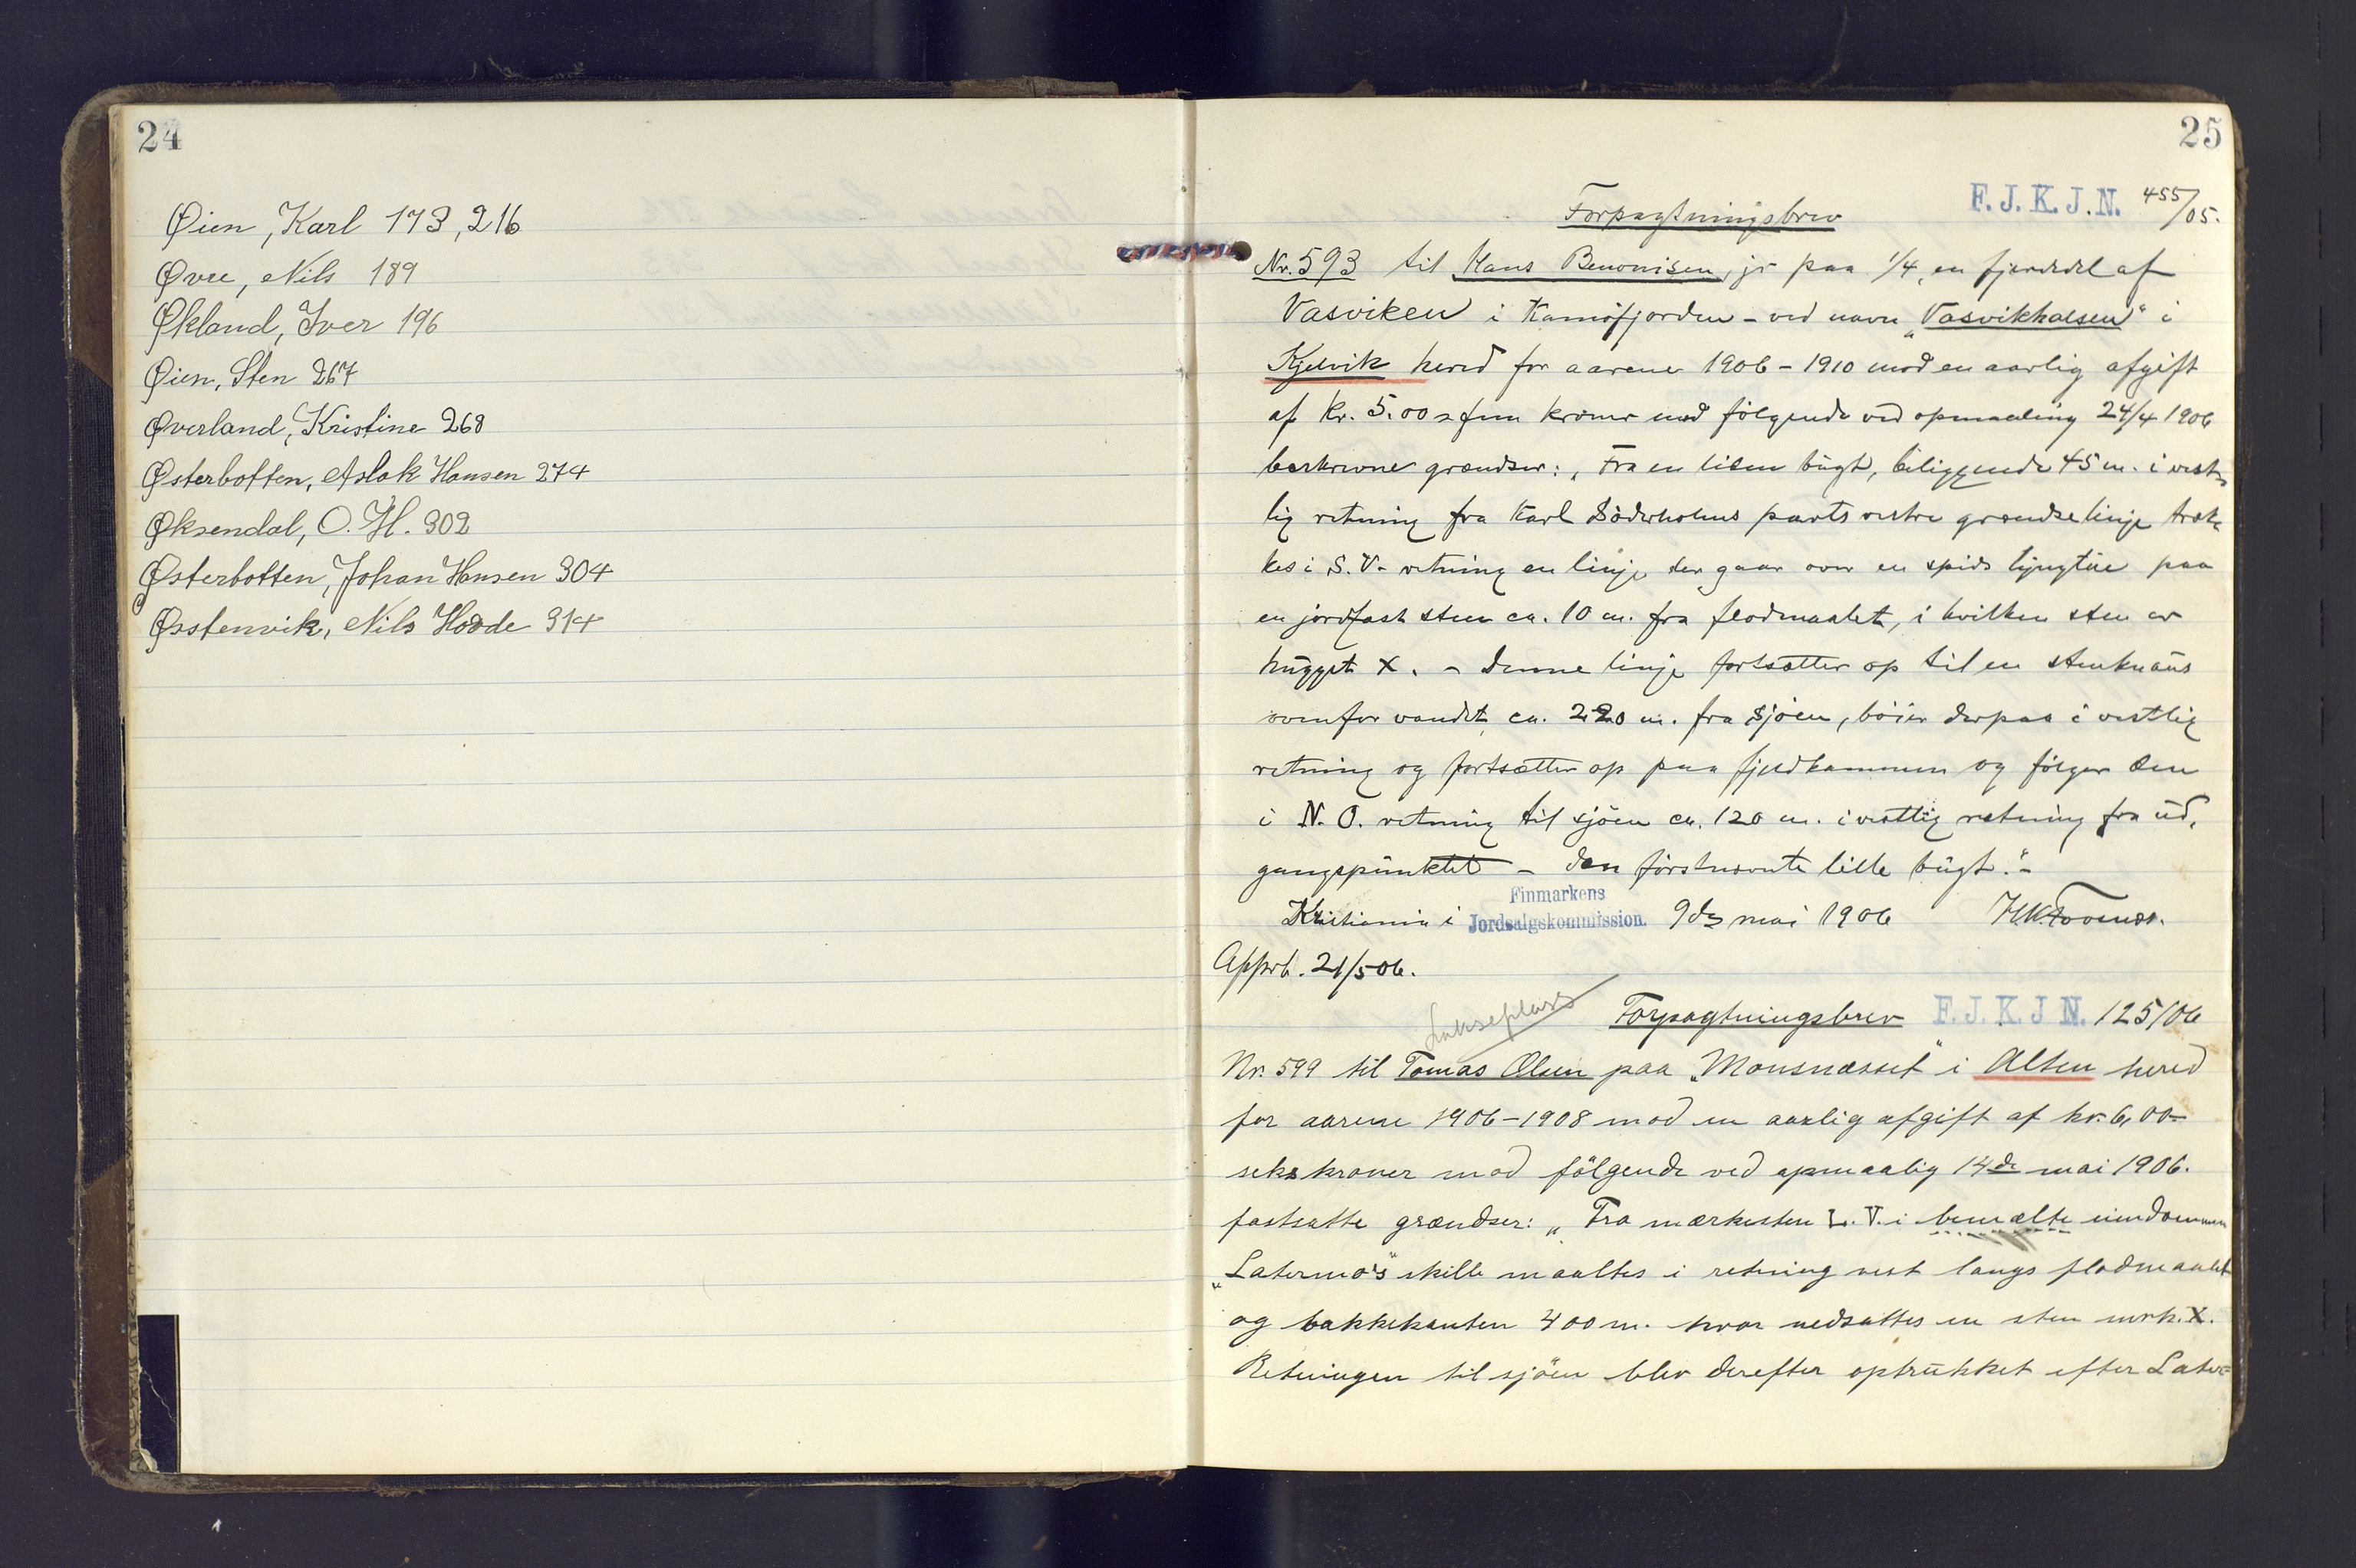 24
Øien, Karl 173, 216
Øvre, Nils 189
Økland, Iver 196
Øien, Sten 267
Øverland, Kristine 268
Østerbotten, Aslak Hansen 274
Øksendal, O. H. 302
Østerbotten, Johan Hansen 304
Østenvik, Nils Hodde 314
25
Forpagtningsbrev F. J. K. J. N. 455/05.
Nr. 593 til Hans Benonisen, paa 1/4, en fjerdedel af
Vasviken i Kamöfjorden - ved navn „Vasvikhaesen" i
Kjelvik hered for aarene 1906 - 1910 mod en aarlig afgift
af kr. 5.00 = fem kroner med fölgende ved opmaaling 24/4 1906
beskrevne grændser: „Fra en liden bügt, beliggende 45 m. i vest-
lig retning fra Karl Söderholms parts vestre grændselinje træk-
kes i S. V. retning en linje der gaar over en spids lyngtüe paa
en jordfast sten ca. 10 m. fra flodmaalet, i hvilken sten er
hügget X. - Denne linje fortsætter op til en stenknaüs
ovenfor vandet ca. 220 m. fra sjöen, böier derpaa i vestlig
retning og fortsætter op paa fjeldkammen og fölger den
i N. O. retning til sjöen ca. 120 m. i vestlig retning fra üd,
gangspünktet - den förstnævnte lille bügt." -
Kristiania i Finmarkens Jordsalgskommission. 9de mai 1906
Apprb. 21/5 06.
Lakseplass
Forpagtningsbrev F. J. K. J N. 125/06
Nr. 599 til Tomas Olsen paa „Monsnæsset" i Alten hered
for aarene 1906-1908 mod en aarlig afgift af kr. 6,00 -
seks kroner mod fölgende ved opmaalig 14de mai 1906.
fastsatte grændser: „Fra mærkesten L. V. i bemælte eiendommen
„Latermo's" skille maaltes i retning vest langs flodmaalet
og bakkekanten 400 m. hvor nedsattes en sten mrk. X.
Retningen til sjöen blev derefter optrükket efter Later=